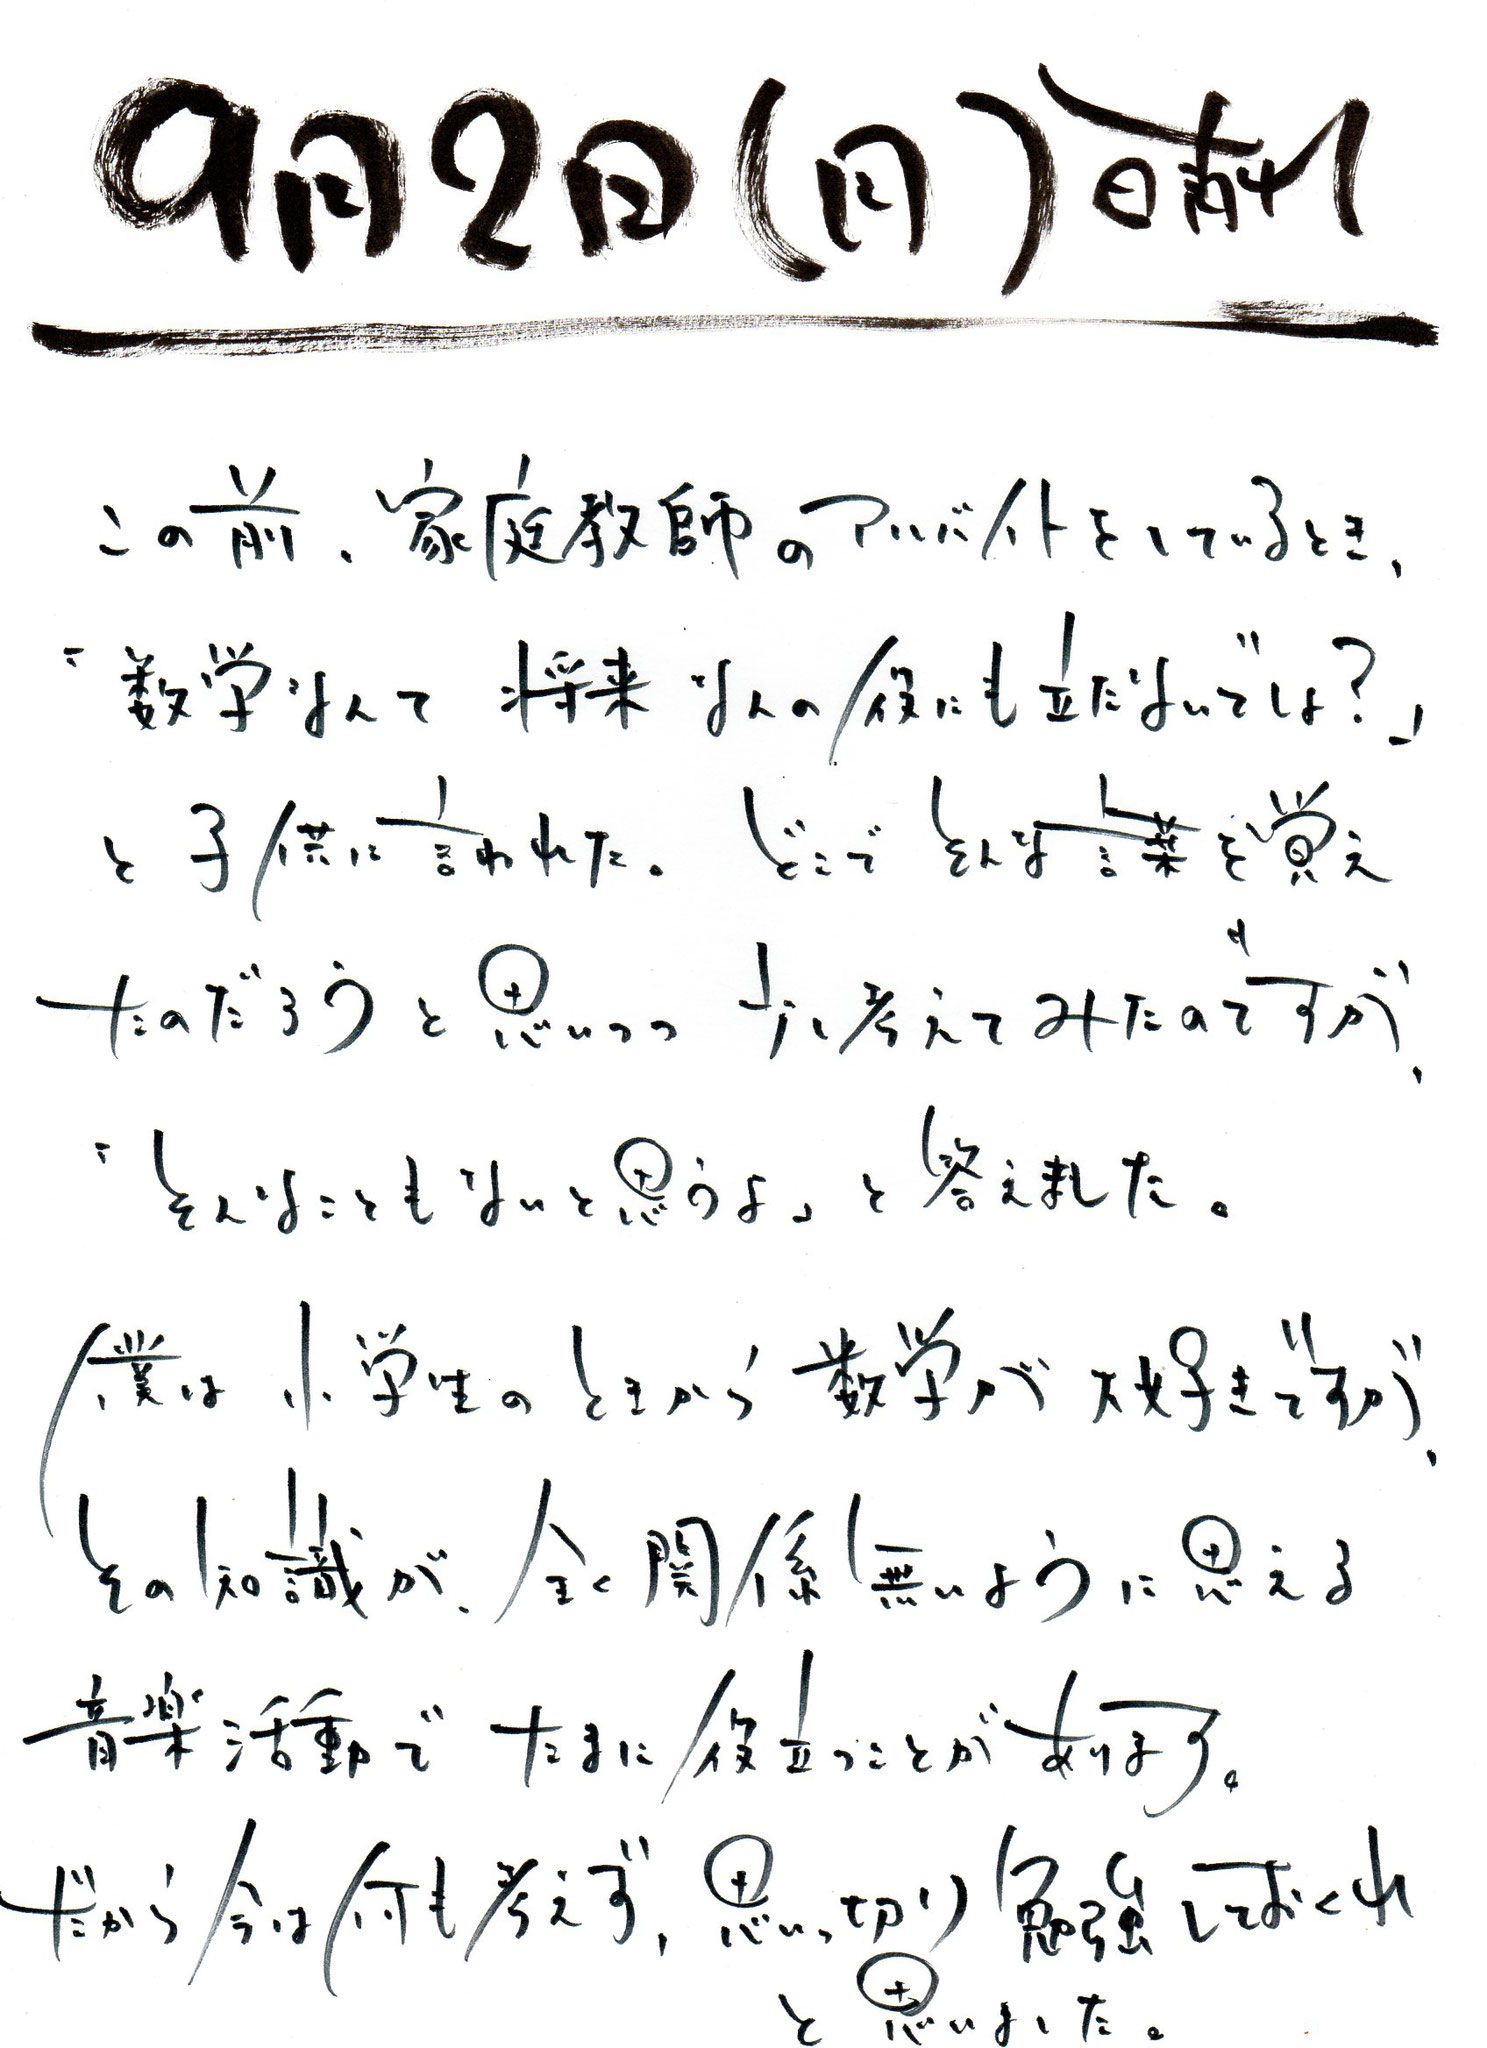 9月2日(月)晴れ
この前、家庭教師のアルバイトをしているとき、
「数学なんて 将来 なんの役にも立たないでしょ?」
と子供に言われた。 どこでそんな言葉を覚え
たのだろうと思いつつ 少し考えてみたのですが、
「そんなこともないと思うよ」と答えました。
僕は小学生のときから数学が大好きですが、
その知識が、全く関係無いように思える
音楽活動で たまに役立つことがあります。
だから今は何も考えず、思いっ切り勉強しておくれ
と思いました。